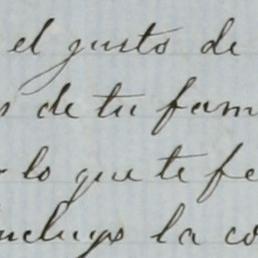 el gusto de
s de tu fam
lo que te fe
incluyo la co